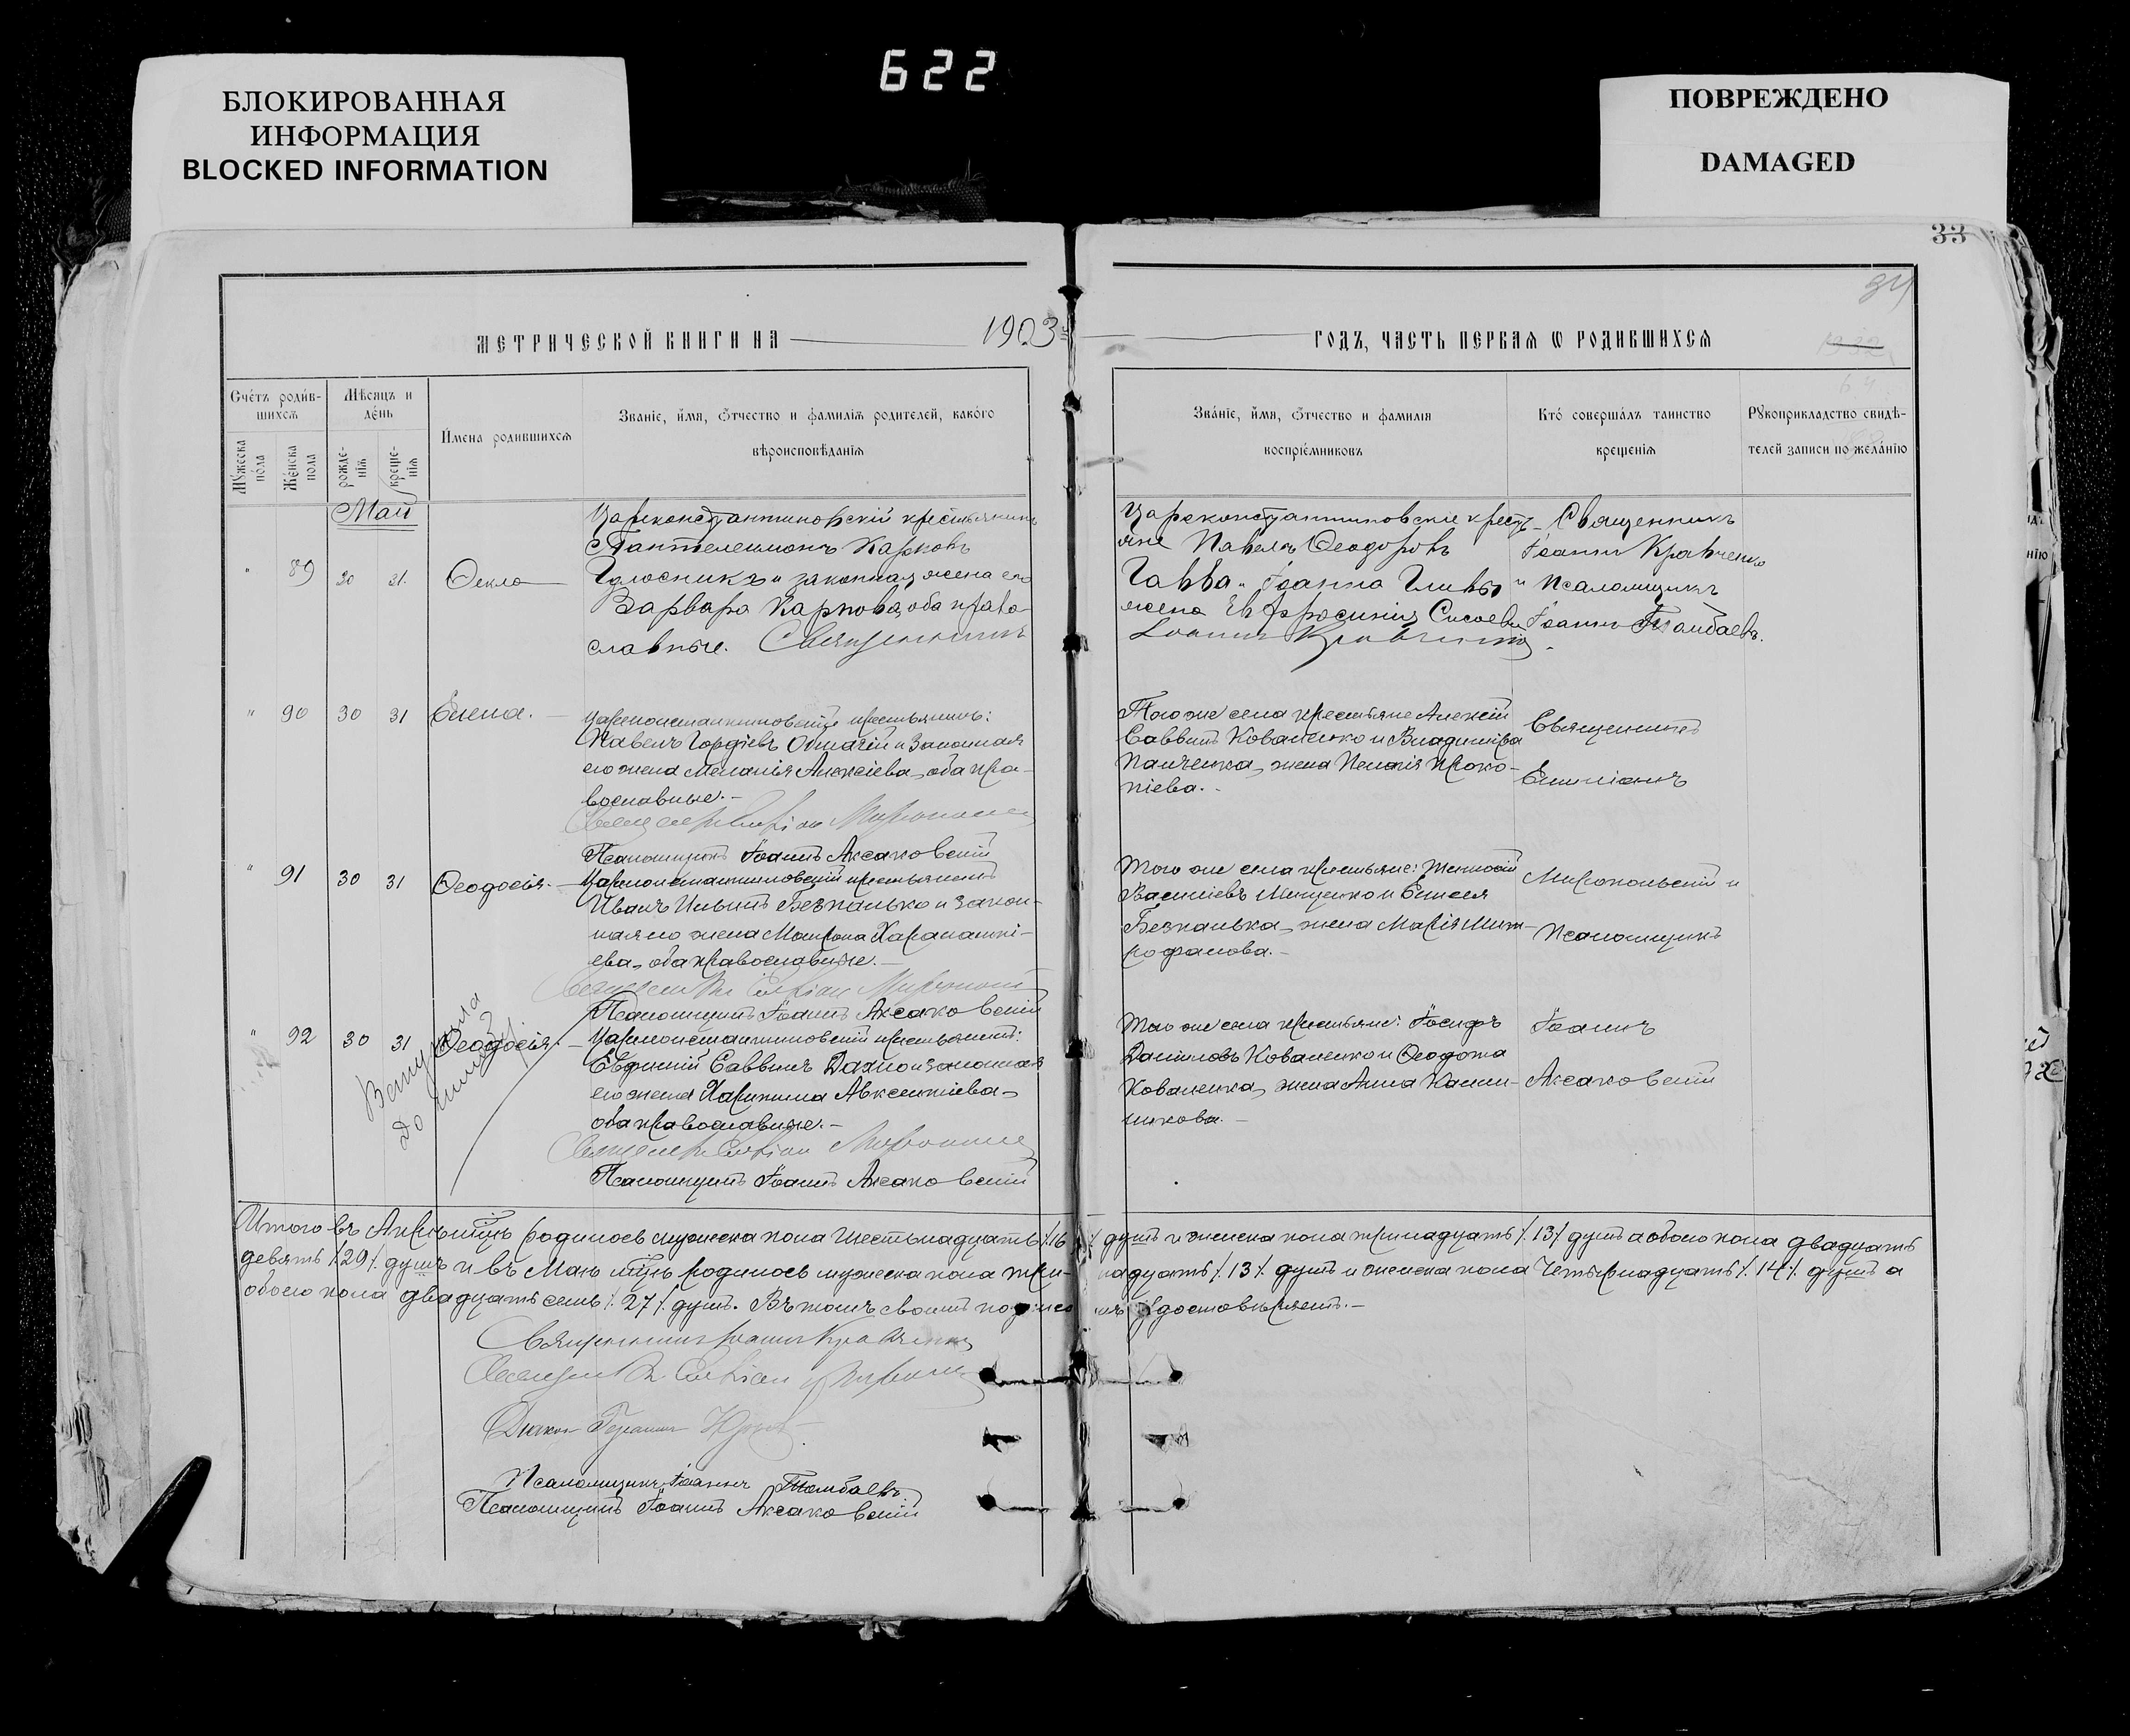 622
БЛОКИРОВАННАЯ
ИНФОРМАЦИЯ
BLOCKED INFORMATION
ПОВРЕЖДЕНО
DAMAGED
33
34
МЕТРИЧЕСКОЙ КНИГИ НА 1903 ГОДЪ, ЧАСТЬ ПЕРВАЯ Ѡ РОДИВШИХСЯ
Счетъ родившихся
Мѣсяцъ и день
Имена родившихся
Званіе, имя, отчество и фамилія родителей, какого вѣроисповѣданія
Званіе, имя, отчество и фамилія воспріемниковъ
Кто совершалъ таинство крещенія
Рукоприкладство свидѣтелей записи по желанію
Мужеска пола
Женска пола
рожденія
крещенія
Май
" 89 30 31. Ѳекла
Цареконстантиновскій крестьянинъ
Пантелеимонъ Карповъ
Голосникъ и законная жена его
Варвара Карпова, оба право-
славные. Священникъ
Цареконстантиновскіе кресть-
яне Павелъ Ѳеодоровъ
Гавва и Іоанна Гливы
жена Евфросинія Сисоева
Іоаннъ Кравченко
Священникъ
Іоаннъ Кравченко
и Псаломщикъ
Іоаннъ Тамбаевъ.
" 90 30 31 Елена.
Цареконстантиновскій крестьянинъ:
Павелъ Гордіевъ и законная
его жена Меланія Алексіева, оба пра-
вославные.-
Псаломщикъ Іоаннъ Аксаковскій
Того же села крестьяне Алексій
Саввинъ Коваленко и Владиміра
Панченка, жена Пелагія Проко-
піева.-
Священникъ
Емиліанъ
" 91 30 31 Ѳеодосія.
Цареконстантиновскій крестьянинъ
Иванъ Ильинъ Безпалько и закон-
ная его жена Матрона Харалампі-
ева, оба православные.-
Псаломщикъ Іоаннъ Аксаковскій
Того же села крестьяне:
Василіевъ Мищенко и Елисея
Безпалька, жена Марія Мит-
рофанова.-
Миропольскій и
Псаломщикъ
" 92 30 31 Ѳеодосія.
Цареконстантиновскій крестьянинъ:
Евфимій Саввинъ Дахно и законная
его жена Харитина Авксентіева,
оба православные.-
Псаломщикъ Іоаннъ Аксаковскій
Того же села крестьяне: Іосифъ
Даніиловъ Коваленко и Ѳеодота
Коваленка, жена Анна Калли-
никова.-
Іоаннъ
Аксаковскій
Итого въ Апрѣлѣ м-цѣ родилось мужеска пола шестьнадцать /.16/. душъ и женска пола тринадцать /.13/. душъ а обоего пола двадцать
девять /.29/. душъ и въ Маѣ м-цѣ родилось мужеска пола три-надцать /.13/. душъ и женска пола четырнадцать /.14/. душъ а
обоего пола двадцать семь /.27/. душъ. Въ томъ своимъ подписомъ удостовѣряетъ.-
Священникъ Іоаннъ Кравченко
Псаломщикъ Іоаннъ Тамбаевъ
Псаломщикъ Іоаннъ Аксаковскій